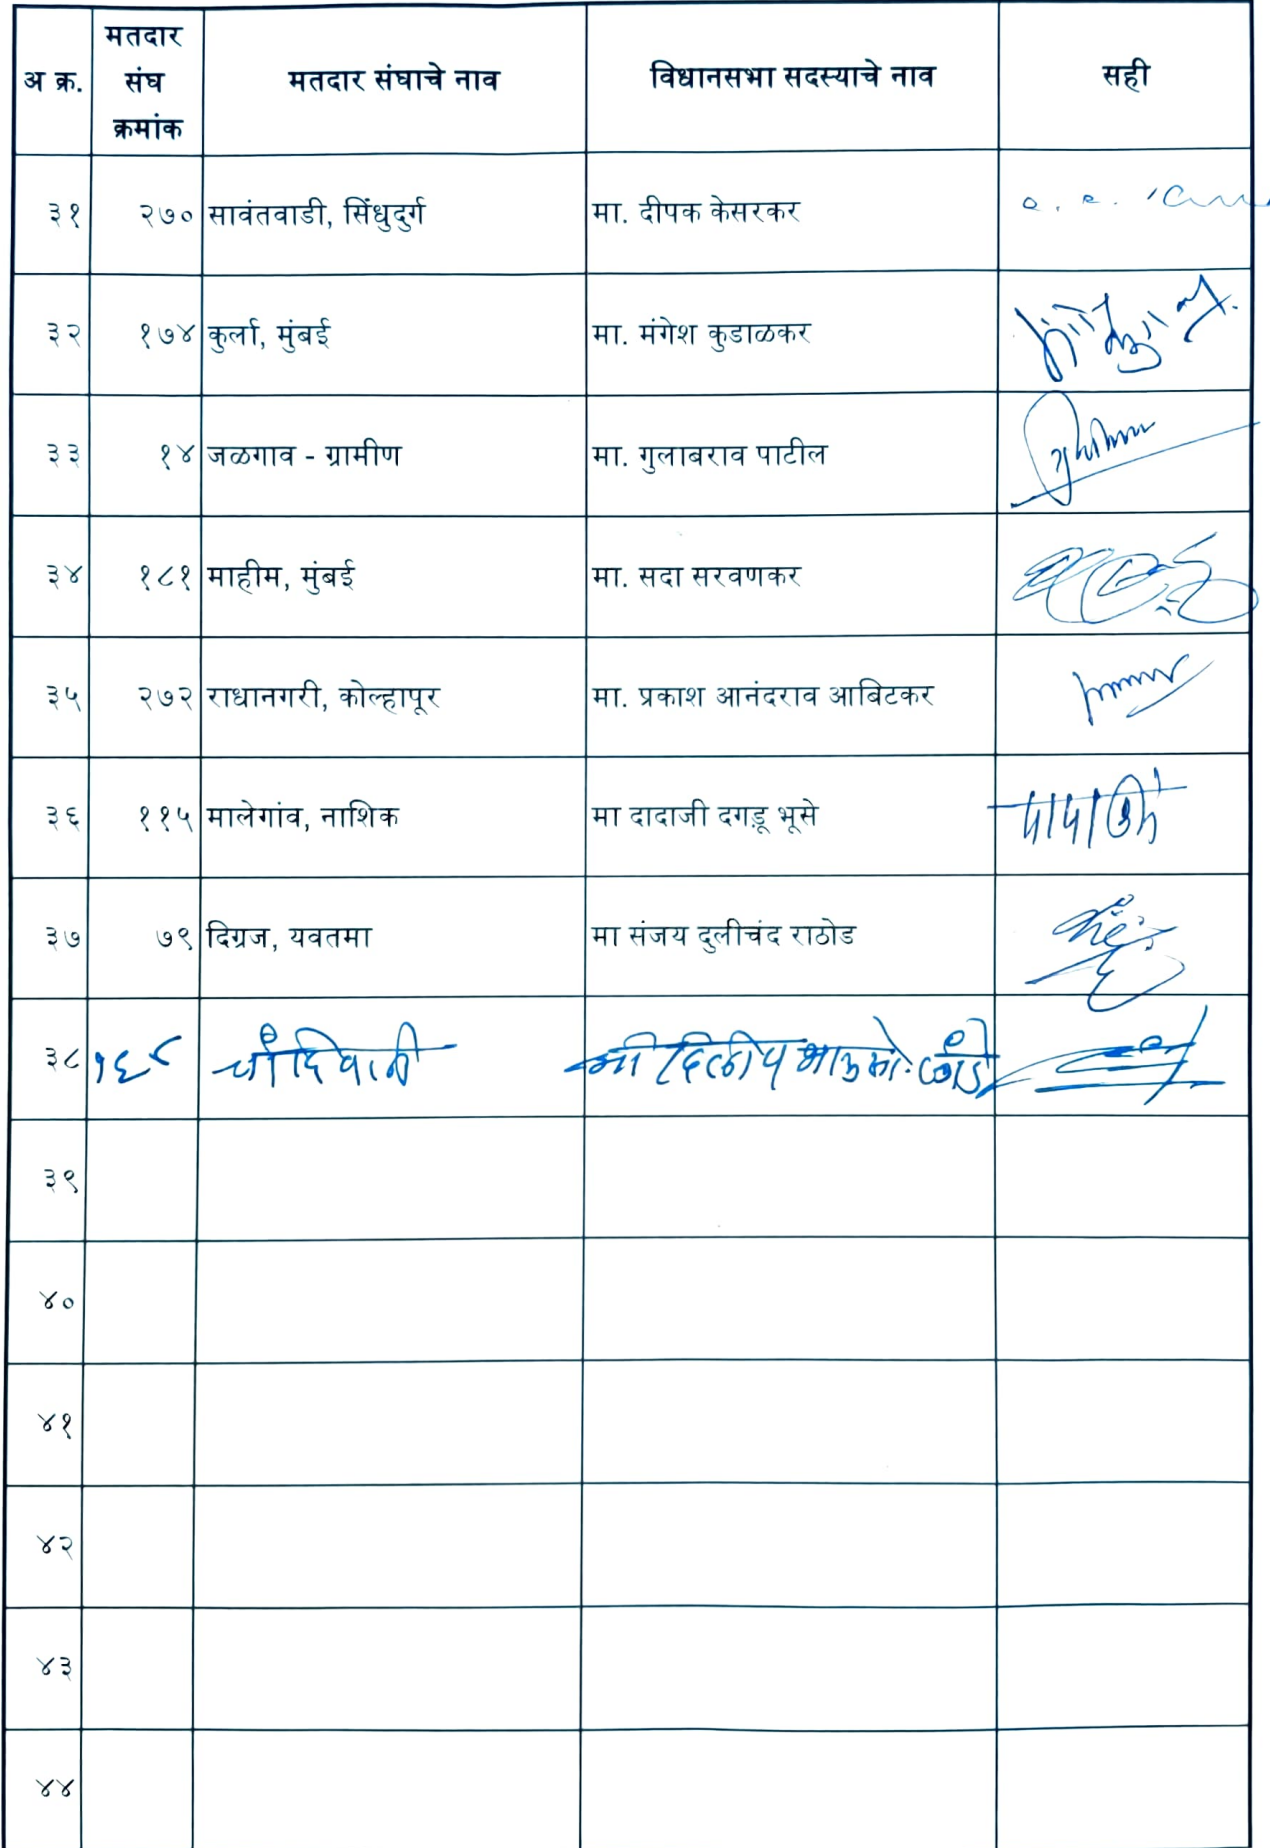 अ क्र. मतदार संघ क्रमांक मतदार संघाचे नाव विधानसभा सदस्याचे नाव सही
३१ २७० सावंतवाडी, सिंधुदुर्ग मा. दीपक केसरकर
३२ १७४ कुर्ला, मुंबई मा. मंगेश कुडाळकर
३३ १४ जळगाव - ग्रामीण मा. गुलाबराव पाटील
३४ १८१ माहीम, मुंबई मा. सदा सरवणकर
३५ २७२ राधानगरी, कोल्हापूर मा. प्रकाश आनंदराव आबिटकर
३६ ११५ मालेगांव, नाशिक मा दादाजी दगडू भूसे
३७ ७९ दिग्रज, यवतमा मा संजय दुलीचंद राठोड
३८ १६८ चाँदिवली श्री दिलीप भाऊसो. लांडे
३९
४०
४१
४२
४३
४४